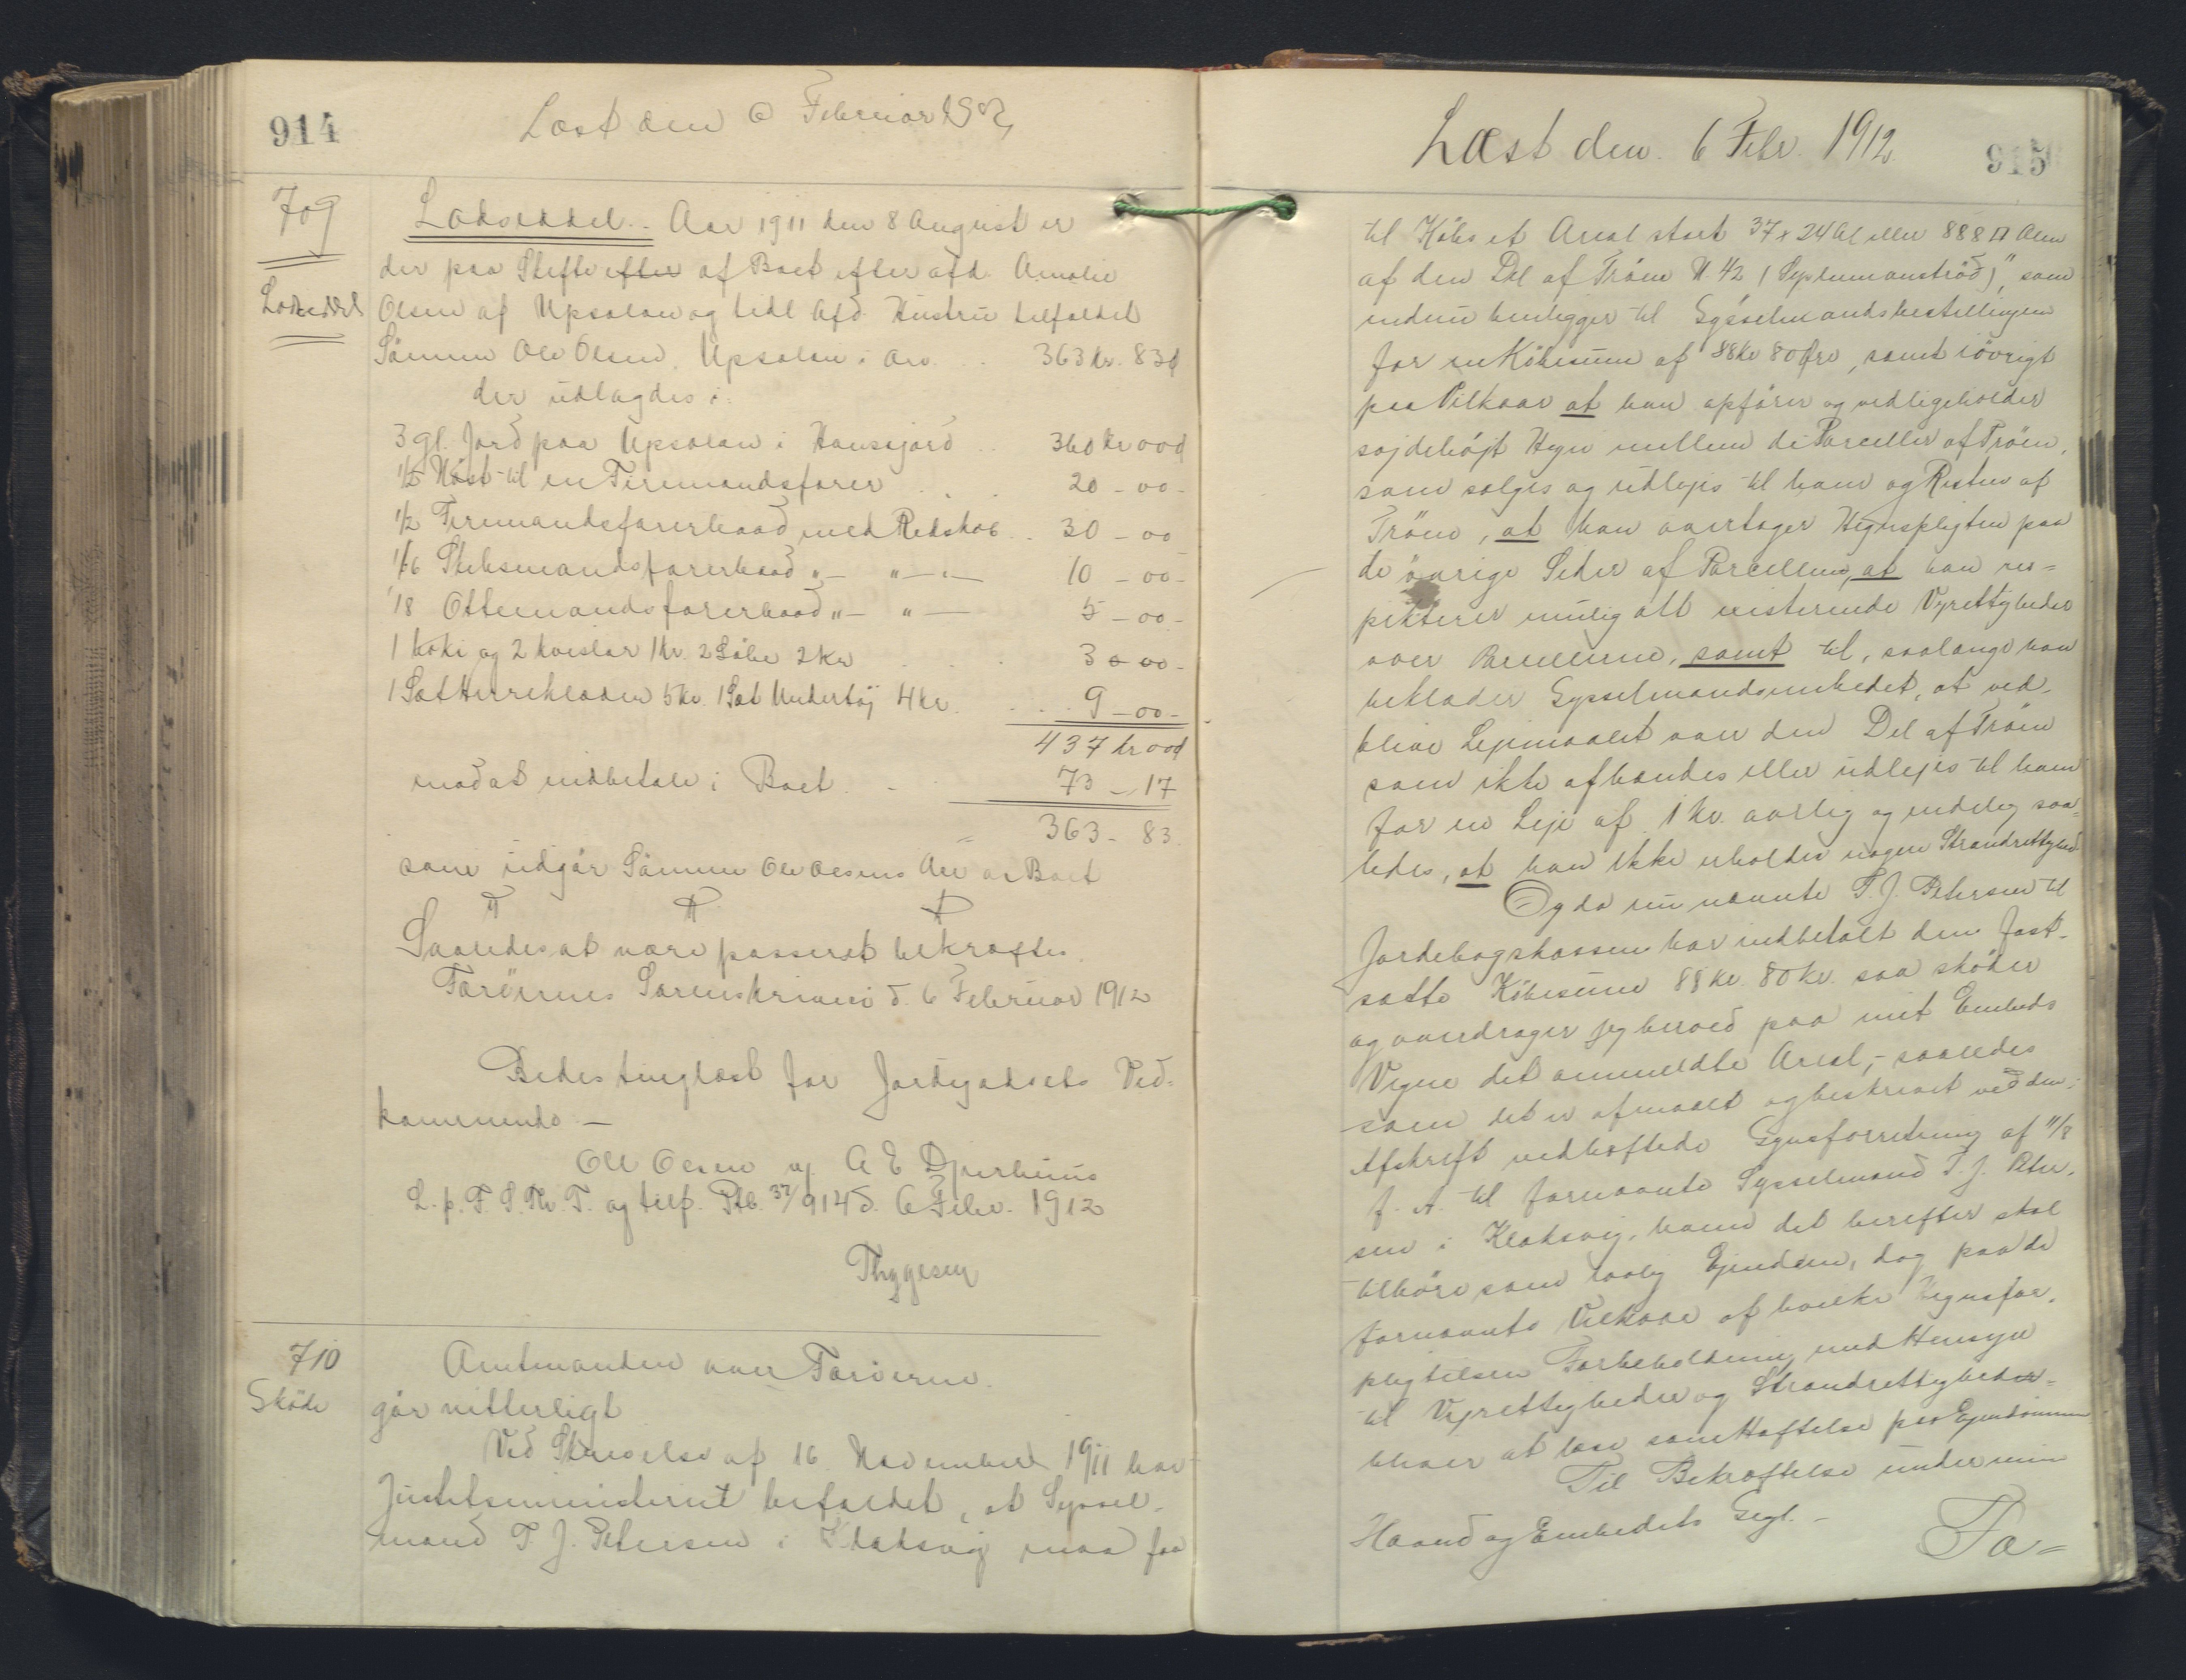 914
Læst den 6 Februar 1912
709
Lodseddel
Lodseddel. Aar 1911 den 8 August er
der paa Skifte efter af Boet efter afd. Amalie
Olsen af Upsalen og tidl. Afd. Hustru tilfaldet
Sönnen Ole Olsen Upsalen i Arv .. 363 kr. 83 ø
der udlagdes i:
3 gl. Jord paa Upsalen i Hansajord .. 360 kr 00 ø
1/2 Nöst til en Firemandsfarer . . . 20 - 00 -
1/2 Firmandsfarerbaad med Redskab .. 30 - 00
1/16 Seksmandsfarerbaad „ — „ — 10 - 00 -
1/8 Ottemandsfarerbaad „ — „ — 5 - 00 -
1 koki og 2 kvislar 1 Kr. 2 Löbe 2 Kr . . . 3 - 00 -
1 Sæt Herreklæder 5 Kr. 1 Sæt Undertöj 4 Kr. . . . 9 - 00 -
437 kr 00 ø
mod at indbetale i Boet . - 73 - 17
363 - 83.
som udgör Sönnen Ole Olsens Arv i Boet
Saaledes at være passeret bekræftes.
Færöernes Sorenskriveri d. 6 Februar 1912
Bedes tinglæst for Jordegodsets Ved-
kommende —
Ole Olsen af A E Djurhuus
L. p. F. S. Th. T. og tilf. Ptb. 37/914 d. 6 Febr. 1912
Thygesen
710
Sköde
Amtmanden over Færöerne
gör vitterligt
Ved Skrivelse af 16. November 1911 har
Justitsministeriet bifaldet, at Syssel-
mand T. J. Petersen i Klaksvig maa faa
Læst den. 6 Febr. 1912
915
til Köbs et Areal stort 37 x 24 Al eller 888 □ Alen
af den Del af Tröen N. 42 (Sysselmanströd)", som
endnu henligger til Sysselmandsbestillingen
for en Köbesum af 88 Kr 80 Øre, samt iövrigt
paa Vilkaar at han opförer og vedligeholder
sojdehöjt Hegn mellem de Parceller af Tröen,
som sælges og udlejes til ham og Resten af
Tröen, at han overtager Hegnspligten paa
de övrige Sider af Parcellen, at han res-
pekterer mulig alt existerende Vejrettigheder
over Parcellerne, samt til, saalænge han
beklæder Sysselmandsembedet, at ved-
blive Lejemaalet over den Del af Tröen
som ikke afhændes eller udlejes til ham
for en Leje af 1 Kr. aarlig og endelig saa-
ledes, at han ikke erholder nogen Strandrettighed
Og da nu nævnte T. J. Petersen til
Jordebogskassen har indbetalt den fast-
satte Köbesum 88 Kr. 80 Kr. saa sköder
og overdrager jeg herved paa mit Embeds
Vegne det ommeldte Areal, - saaledes
som det er afmaalt og beskrevet ved den i
Afskrift vedhæftede Synsforretning af 11/8
f. A. til fornævnte Sysselmand T. J. Peter-
sen i Klaksvig, ham det herefter skal
tilhöre som lovlig Ejendom, dog paa de
fornævnte Vilkaar af hvilke Hegnsfor-
pligtelsen Forbeholdning med Hensyn
til Vejrettigheder og Strandrettigheder-
bliver at læse som Hæftelse paa Ejendommen
Til Bekræftelse under min
Haand og Embedets Segl. -
Fæ=